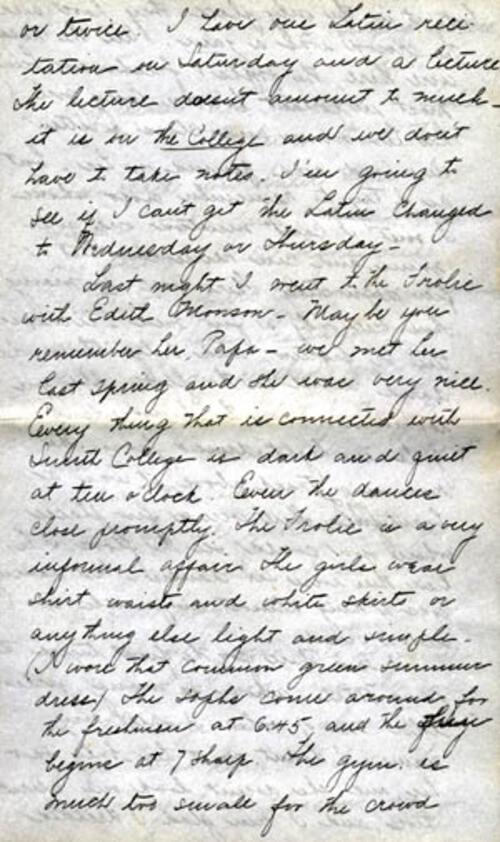 or twice. I have one Latin reci
tation on Saturday and a lecture
The lecture doesn't amount to much
it is on the College and we don't
have to take notes. I'm going to
see if I can't get the Latin changed
to Wednesday or Thursday -
Last night I went to the Frolic
with Edith Monson - Maybe you
remember her, Papa - we met her
last spring and she was very nice.
Every thing that is connected with
Smith College is dark and quiet
at ten o'clock. Even the dances
close promptly. The Frolic is a very
informal affair. The girls wear
shirt waists and white skirts or
anything else light and simple.
(I wore that common green summer
dress) The sophs come around for
the freshmen at 6:45 and the
begins at 7 sharp. The gym. is
much too small for the crowd